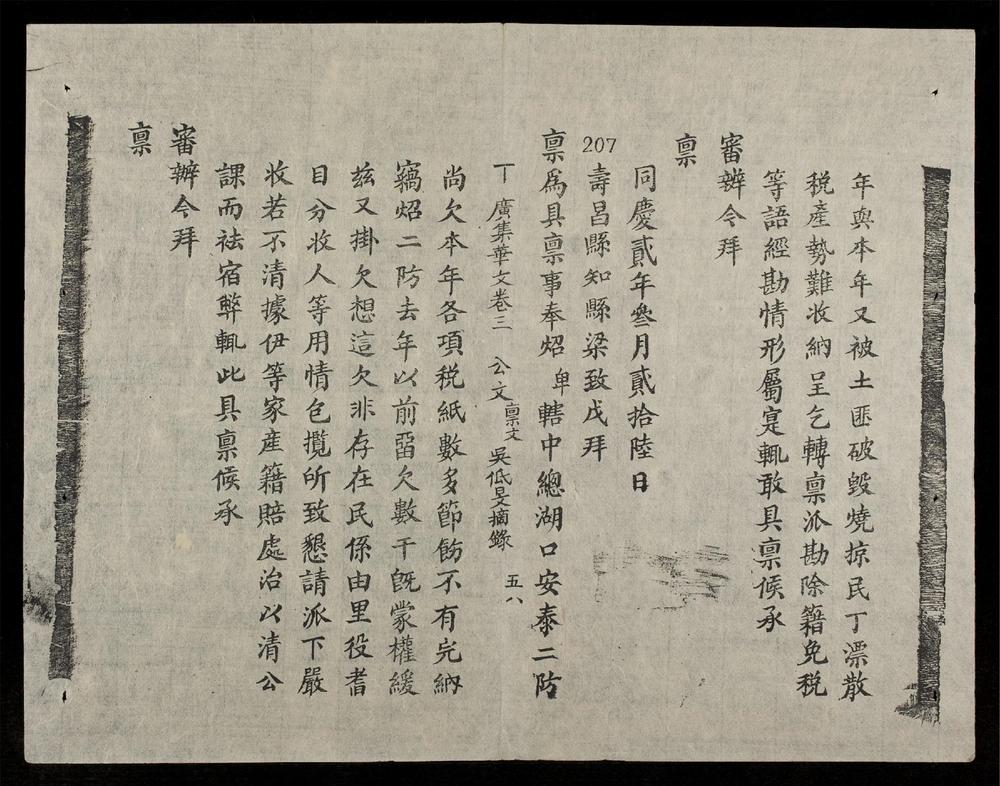 年與本年又被土匪破毀燒掠民丁漂散
税產勢難收納呈乞轉禀派勘除籍免税
等語經勘情形屬寔輒敢具禀候承
審辦今拜
禀
同慶貳年叄月貳拾陸日
207
壽昌縣知縣梁致戊拜
禀爲具禀事奉炤卑轄中總湖口安泰二防
丅 廣集華文卷三 公文 禀文 吳低旻摘錄 五八
尚欠本年各項税紙數多節飭不有完納
竊炤二防去年以前畱欠數干旣蒙權緩
玆又掛欠想這欠非存在民係由里役耆
目分收人等用情包攬所致懇請派下嚴
收若不清據伊等家産籍賠處治以清公
課而祛宿弊輒此具禀候承
審辦今拜
禀